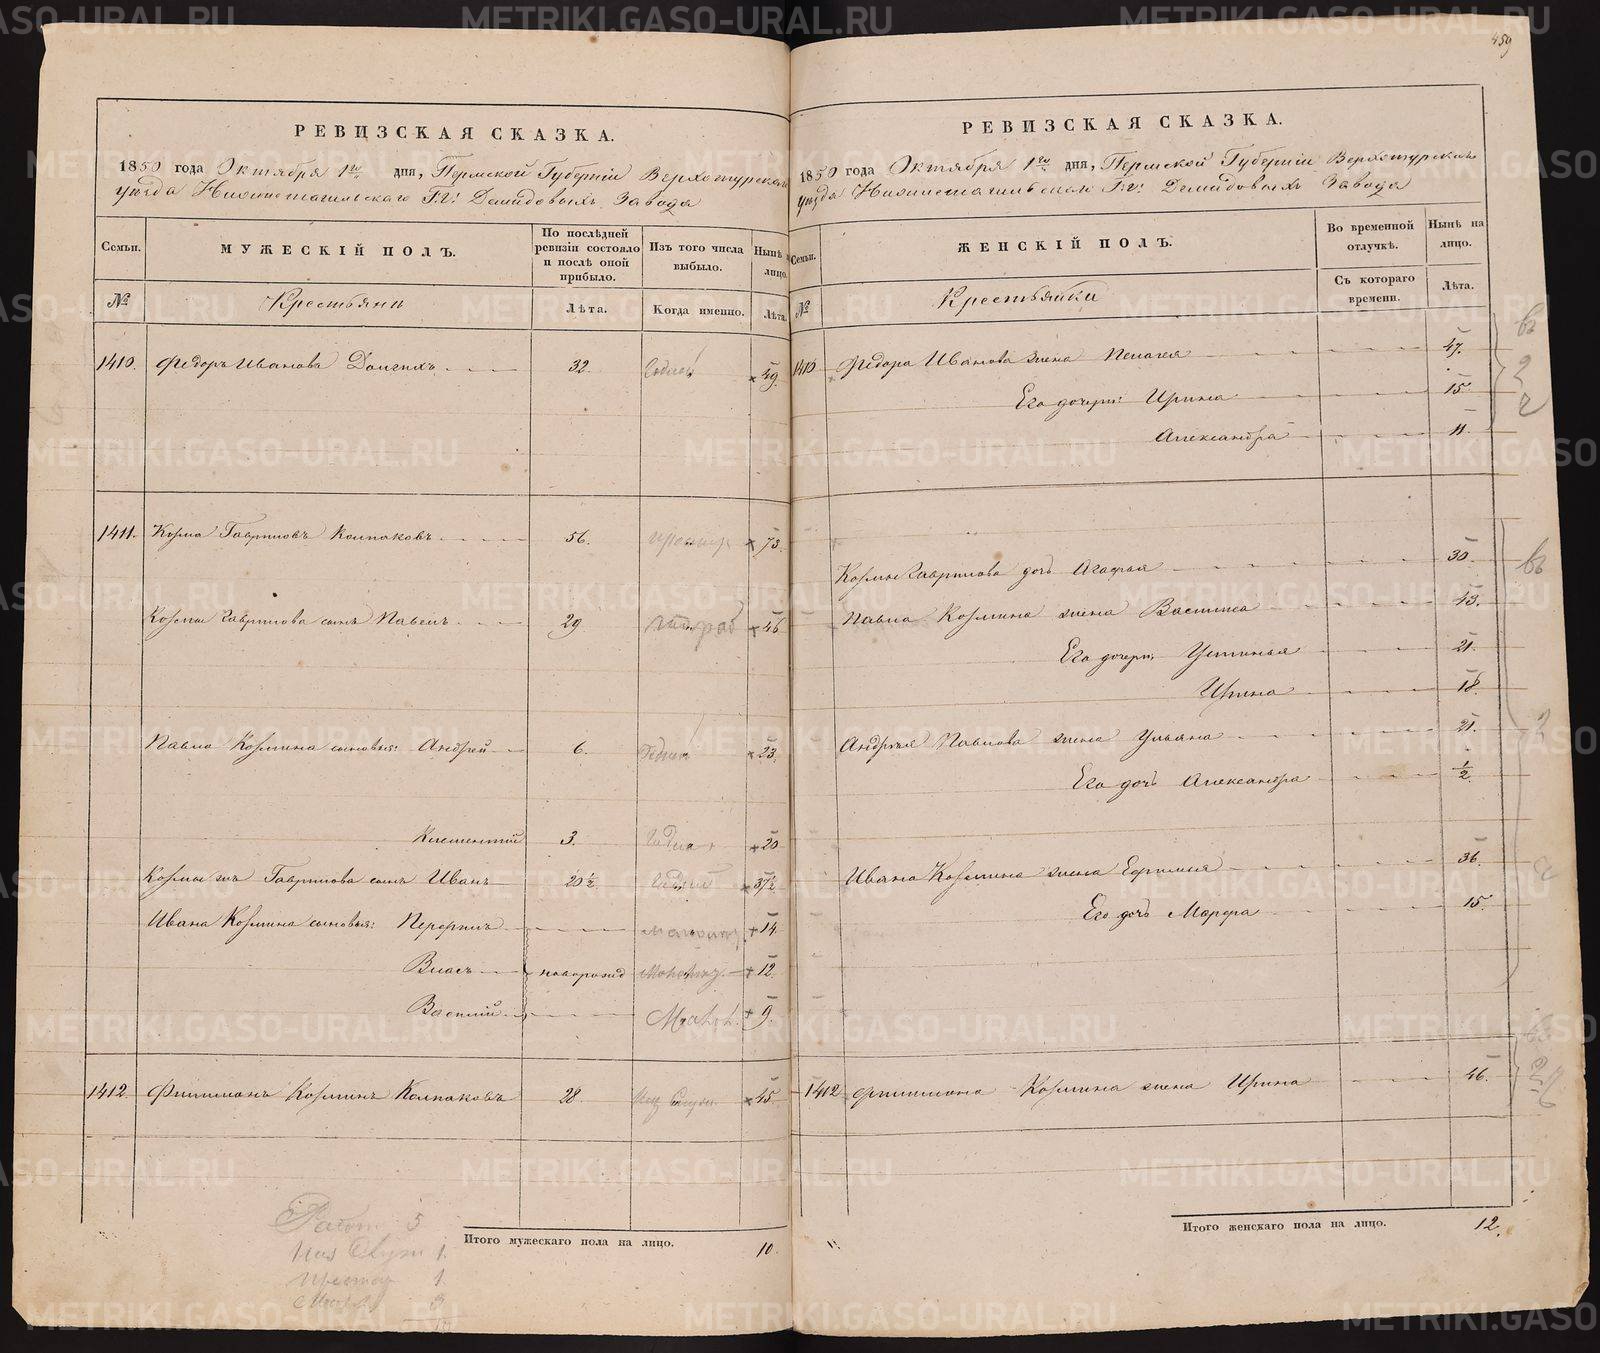 459
РЕВИЗСКАЯ СКАЗКА.
1850 года Октября 1го дня, Пермской Губерніи Верхотурскаго
уѣзда Нижнетагильскаго Г.г. Демидовыхъ Завода
Семьи.
МУЖЕСКІЙ ПОЛЪ.
По послѣдней ревизіи состояло и послѣ оной прибыло.
Изъ того числа выбыло.
Нынѣ на лицо.
№
Крестьяне
Лѣта.
Когда именно.
Лѣта.
1410. Федоръ Иванова Долгихъ 32. Годной 49.
1411. Козма Гавриловъ Колпаковъ 56. престар 73.
Козмы Гаврилова сынъ Павелъ 29. 46
Павла Козмина сыновья: Андрей 6. Годной 23.
Климентий 3. Годна 20
Козмы жъ Гаврилова сынъ Иванъ 20½ Годный 37½
Ивана Козмина сыновья: Перфилъ малолет 14.
Власъ новорожд Малолет 12.
Василий Малол. 9.
1412. Филимонъ Козминъ Колпаковъ 28. 45.
Итого мужескаго пола на лицо. 10.
Работ 5
1.
Престар 1
3
10
РЕВИЗСКАЯ СКАЗКА.
1850 года Октября 1го дня, Пермской Губерніи Верхотурскаго
уѣзда Нижнетагильскаго Г.г. Демидовыхъ Завода
Семьи.
ЖЕНСКІЙ ПОЛЪ.
Во временной отлучкѣ.
Нынѣ на лицо.
№
Крестьянки
Съ котораго времени.
Лѣта.
1410 Федора Иванова жена Пелагея 47.
Его дочери: Ирина 15.
Александра 11.
Козмы Гаврилова дочь Агафья 30.
Павла Козмина жена Василиса 43.
Его дочери: Устинья 21.
Ирина 18.
Андрея Павлова жена Ульяна 21.
Его дочь Александра ½
Ивана Козмина жена Ефимия 36.
Его дочь Марфа 15.
1412 Филимона Козмина жена Ирина 46.
Итого женскаго пола на лицо. 12.
METRIKI.GASO-URAL.RU